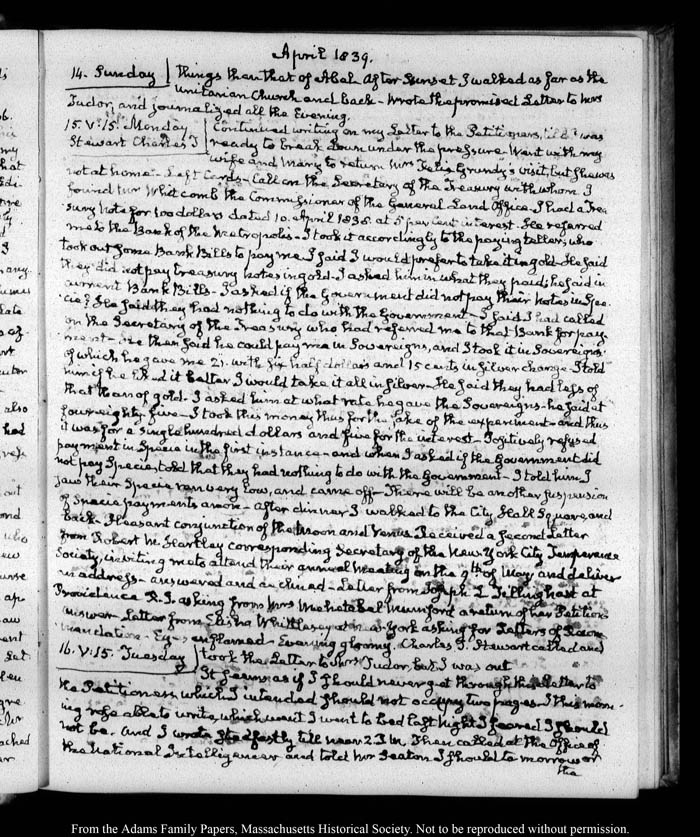 April 1839.
14. Sunday | things than that of Abel after sunset I walked as far as the
Unitarian Church and back - Wrote the promised Letter to Mrs
Tudor, and journalized all the Evening.
15. V:15. Monday | Continued writing on my Letter to the Petitioners, till I was
Stewart Charles J | ready to break down under the pressure - Went with my
wife and Mary to return Mrs Felix Grundy's visit, but she was
not at home - Left Cards - Call on the Secretary of the Treasury with whom I
found Mr Whitcomb the Commissioner of the General Land Office - I had a Trea
sury Note for 100 dollars dated 10. April 1838. at 5 per cent interest. He referred
me to the Bank of the Metropolis - I took it accordingly to the paying teller, who
took out some Bank Bills to pay me I said I would prefer to take it in gold - He said
they did not pay treasury notes in gold - I asked him in what they paid; he said in
current Bank Bills - I asked if the Government did not pay their notes in spe.
cie? He said they had nothing to do with the Government - I said I had called
on the Secretary of the Treasury who had referred me to that Bank for pay-
ment - He then said he could pay me in Sovereigns, and I took it in Sovereigns.
of which he gave me 21. with six half dollars and 15 cents in silver change I told
him if he liked it better I would take it all in silver - He said they had less of
that than of gold. I asked him at what rate he gave the Sovereigns - he said at
four eighty five - I took this money thus for the sake of the experiment - and thus
it was for a single hundred dollars and five for the interest - Positively refused
payment in Specie in the first instance - and when I asked if the Government did
not pay Specie, told that they had nothing to do with the Government - I told him I
saw their Specie ran very low, and came off - There will be another suspension
of Specie payments anon - after dinner I walked to the City Hall Square, and
back - Pleasant conjunction of the Moon and Venus. Received a second Letter
from Robert M. Hartley corresponding Secretary of the New-York City Temperance
Society, inviting me to attend their annual Meeting on the 9th of May and deliver
an address - answered and declined - Letter from Joseph L Tillinghast at
Providence R.I. asking from Mrs Mehetabel Munford a return of her Petition
answer - Letter from Elisha Whittlesey at New-York asking for Letters of Recom
mendation - Eye enflamed - Evening gloomy. Charles J. Stewart called and
16. V:15. Tuesday | took the Letter to Mrs Tudor, but I was out
It seems as if I should never get through the Letter to
the Petitioners, which I intended should not occupy two pages - I this morn-
ing rose able to write, which when I went to bed last night I feared I should
not be. and I wrote steadfastly till near 2 P.M. Then called at the Office of
the National Intelligencer and told Mr Seaton I should to morrow or
the
From the Adams Family Papers, Massachusetts Historical Society. Not to be reproduced without permission.